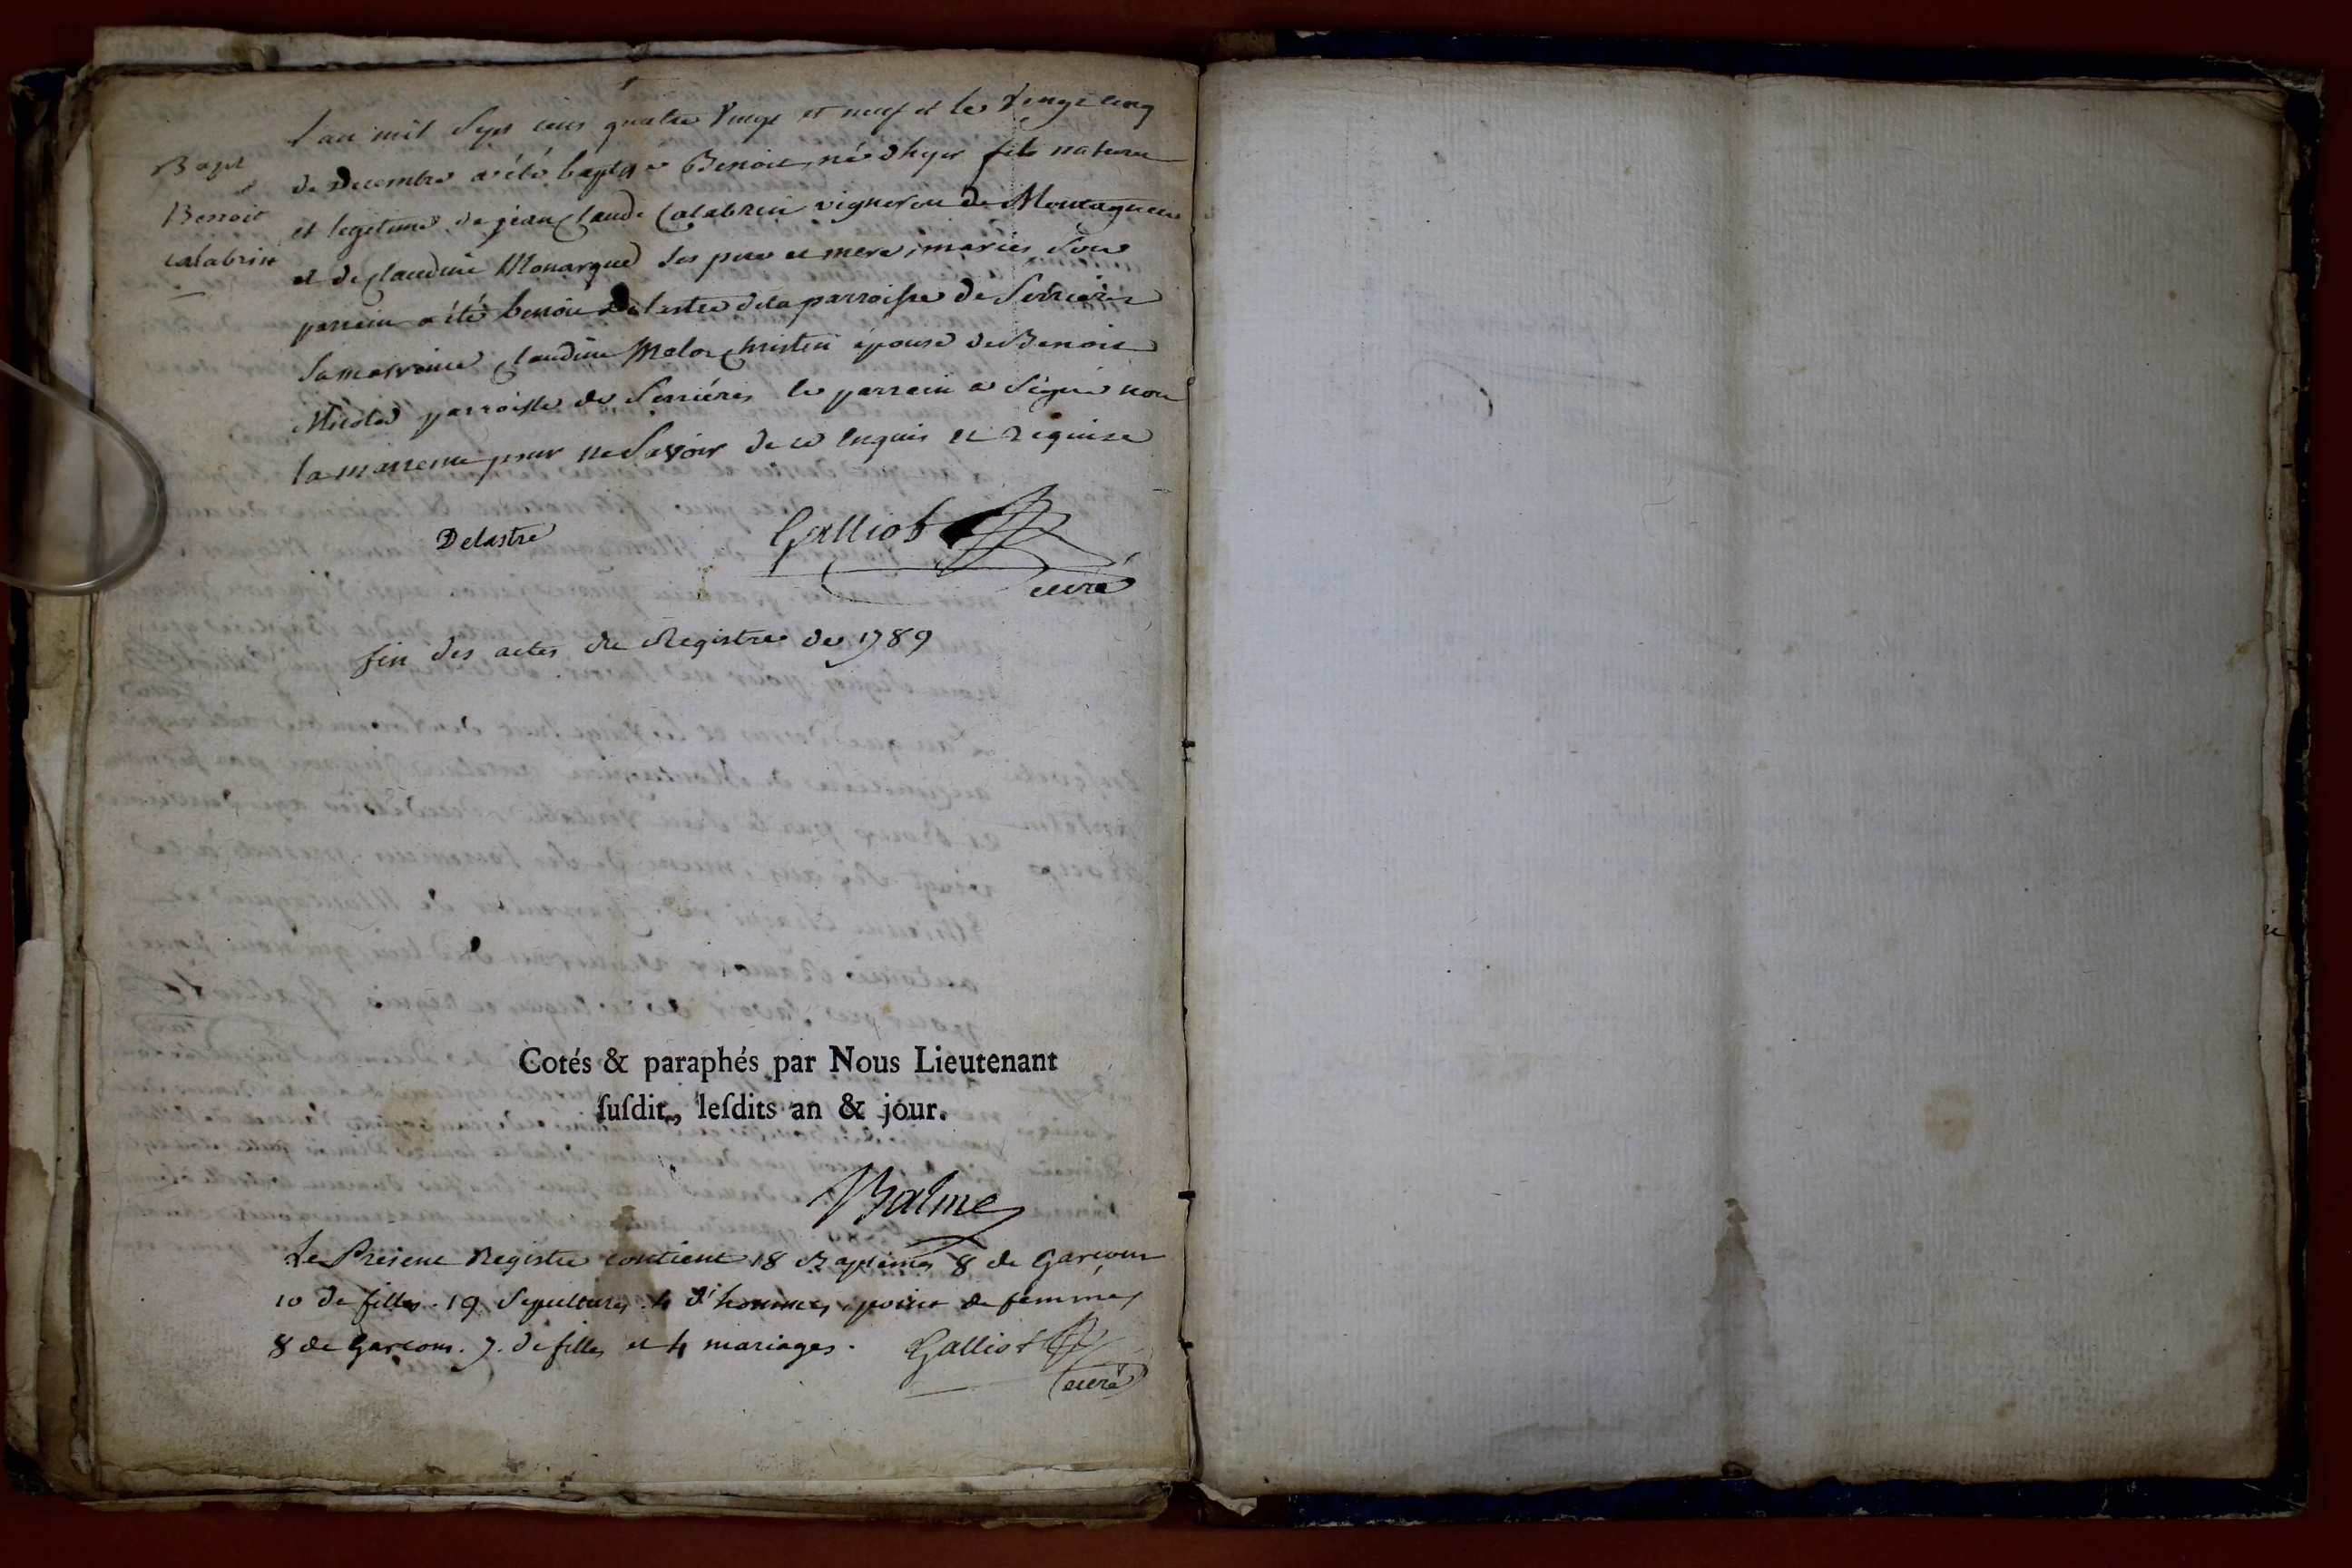 L'an mil Sept cens quatre Vingt et neuf et le Vingt cinq
de Decembre a été baptisé Benoit né d'hyer fils naturel
et legitime de jean Claude Calabrin vigneron de Montagnieu
et de Claudine Monarque ses pere et mere mariés Son
parrein a été benoit Delastre de la parroisse de Serrieres
Sa marraine Claudine christin épouse de Benoit
Micoled parroisse de Serriéres le parrein a Signé non
la marreine pour ne Savoir de ce enquis et requise
Bapt
Benoit
calabrin
Delastre
Galliot
curé
fin des actes du Registre de 1789
Cotés & paraphés par Nous Lieutenant
ſuſdit, leſdits an & jour.
Balme
Le Présent Registre contient 18 Baptêmes 8 de Garçons
10 de filles. 19 Sepultures. 4 d'hommes, point de femmes
8 de Garcons. 7. de filles et 4 mariages.
Galliot
curé